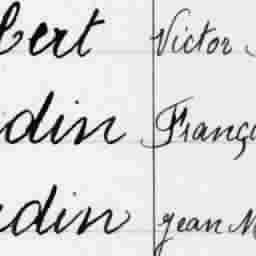 bert Victor
din Franç
din Jean M